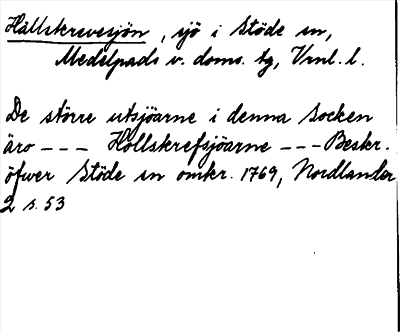 Hällskrevesjön, sjö i Stöde sn,
Medelpads v. doms. tg, Vrnl. l.
De större utsjöarne i denna Socken
äro --- Hollskrefsjöarne --- Beskr.
öfwer Stöde sn omkr. 1769, Nordlander
2 s. 53